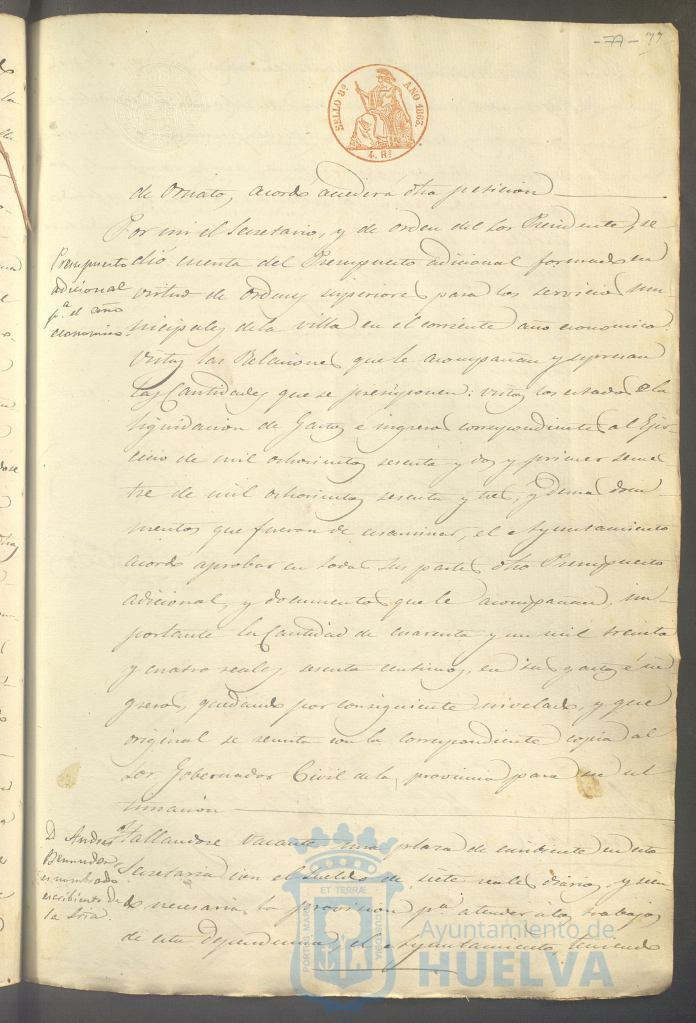 - 77 - 77
SELLO 8º AÑO 1863.
4. Rs
de Ornato, acordó acceder á dha peticion
Por mi el Secretario, y de orden del Sor Presidente, se
Presupuesto
adicional
pª el año
economico.
dió cuenta del Presupuesto adicional formado en
virtud de ordenes superiores para los servicios mu-
nicipales de la villa en el corriente año economico.
Vistas las Relaciones que le acompañan y espresan
las Cantidades que se presuponen: vistos los estados de la
liquidacion de Gastos e ingresos correspondientes al Ejer-
cicio de mil ochocientos sesenta y dos y primer semes
tre de mil ochocientos sesenta y tres, y demas docu-
mentos que fueron de examinar, el Ayuntamiento
acordó aprobar en todas sus partes dho Presupuesto
adicional, y documentos que le acompañan, im-
portante la Cantidad de cuarenta y un mil treinta
y cuatro reales, sesenta centimos, en sus gastos é in
gresos, quedando por consiguiente nivelado, y que
original se remita con la correspondiente copia al
Sor. Gobernador Civil de la provincia para su ul
timacion
D. Andres
Bermudez
es nombrado
escribiente de
la Sria.
Hallandose vacante una plaza de escribiente en esta
Secretaria con el sueldo de siete reales diarios, y sien
do necesaria la provision pª atender á los trabajos
de esta dependencia, el Ayuntamiento teniendo
PORTUS MARIS ET TERRÆ CUSTODIA
Ayuntamiento de
HUELVA